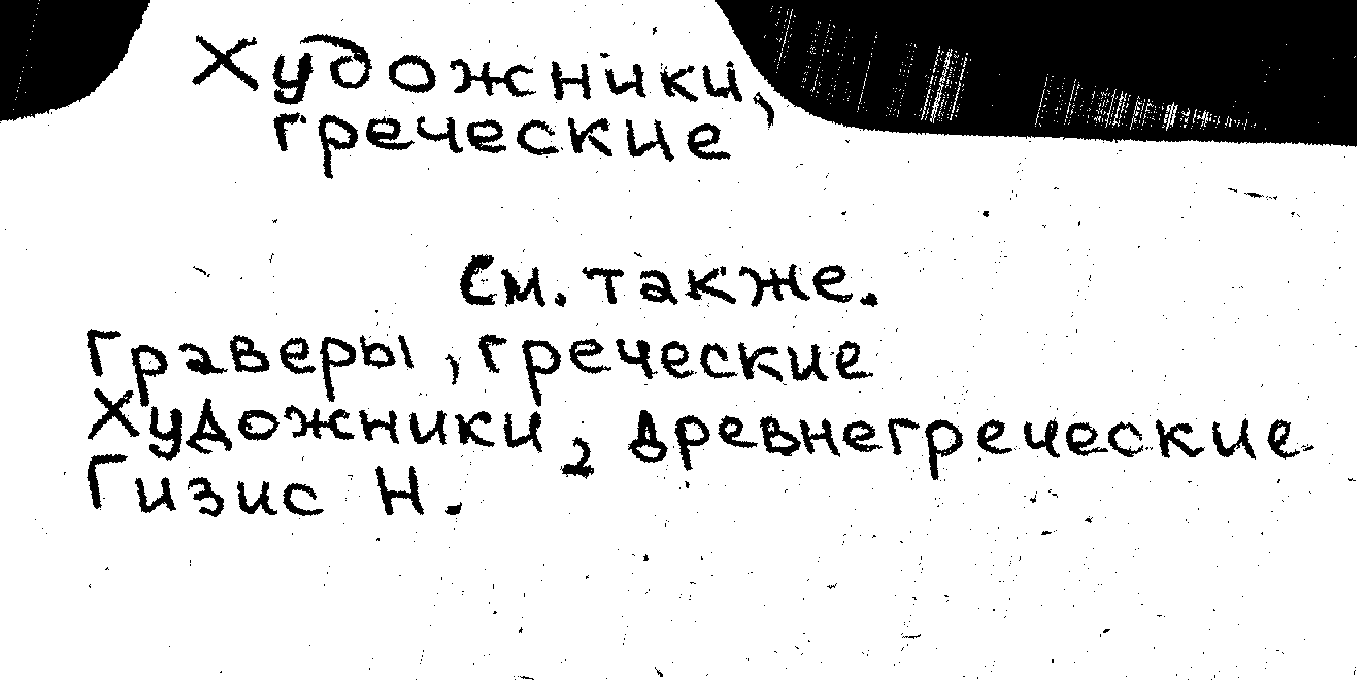 Художники,
греческие
См. также.
Граверы, греческие
Художники, древнегреческие
Гизис Н.